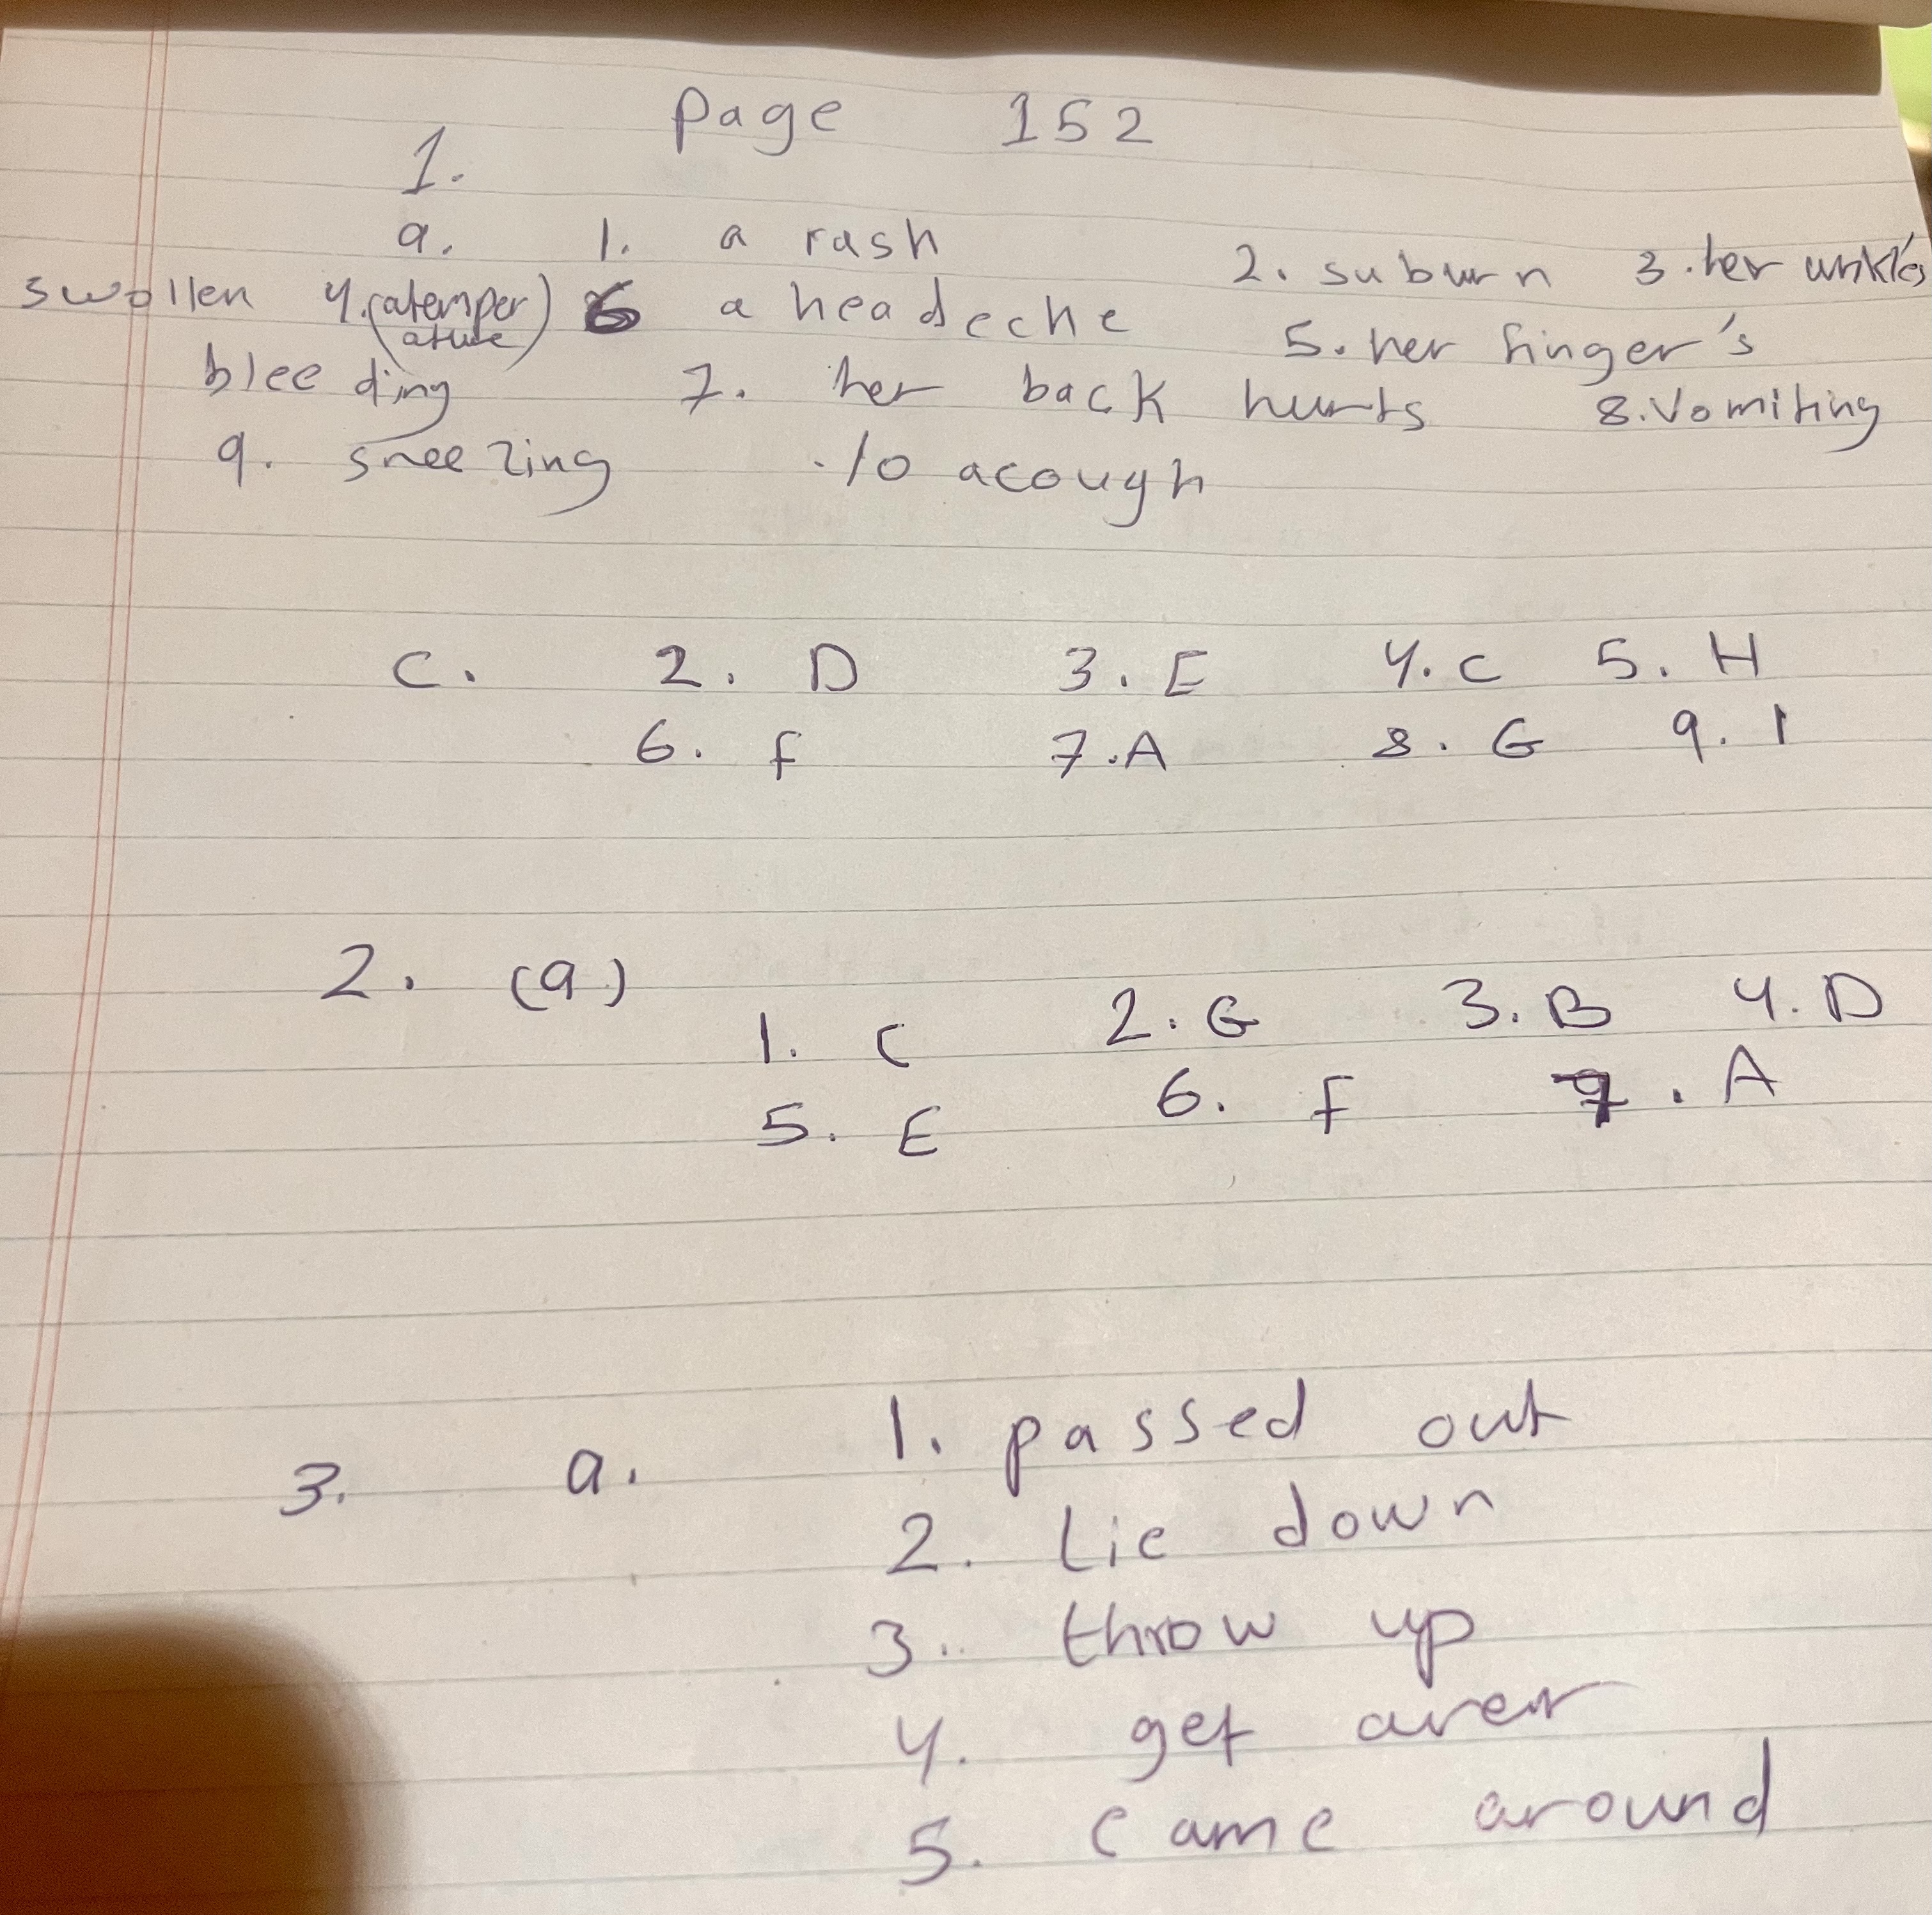 Page 152
1.
a. 1. a rash 2. suburn 3. her unkle's
swollen 4. (atemper ature) 6 a headeche 5. her finger's
bleeding 7. her back hurts 8. vomiting
9. sneezing . 10 acough
C. 2. D 3. E 4. C 5. H
6. f 7. A 8. G 9. I
2. (a)
1. C 2. G 3. B 4. D
5. E 6. F 7. A
3. a. 1. passed out
2. Lie down
3. throw up
4. get
5. came around